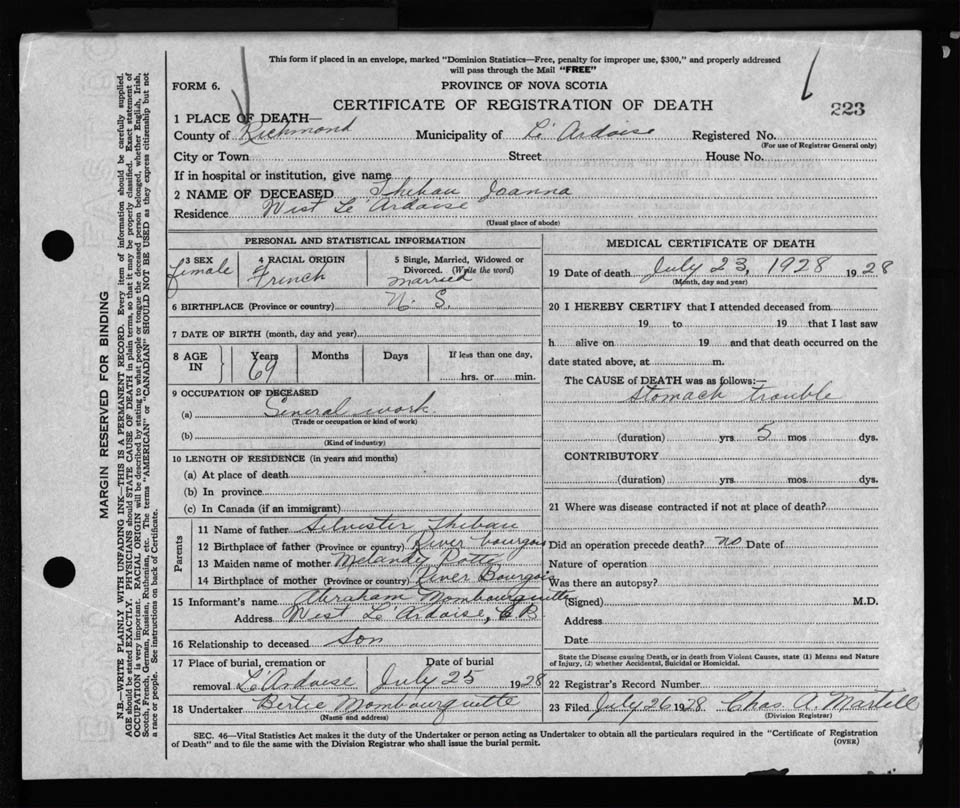 This form if placed in an envelope, marked "Dominion Statistics—Free, penalty for improper use, $300," and properly addressed
will pass through the Mail "FREE"
FORM 6. PROVINCE OF NOVA SCOTIA
CERTIFICATE OF REGISTRATION OF DEATH 223
1 PLACE OF DEATH—
County of Richmond Municipality of Le' Ardoise Registered No.
(For use of Registrar General only)
City or Town Street House No.
If in hospital or institution, give name
2 NAME OF DECEASED Thibau Joanna
Residence West Le' Ardoise
(Usual place of abode)
PERSONAL AND STATISTICAL INFORMATION
3 SEX 4 RACIAL ORIGIN 5 Single, Married, Widowed or
Divorced. (Write the word)
female French married
6 BIRTHPLACE (Province or country) N. S.
7 DATE OF BIRTH (month, day and year)
8 AGE IN Years Months Days If less than one day,
69 hrs. or min.
9 OCCUPATION OF DECEASED
(a) General work.
(Trade or occupation or kind of work)
(b)
(Kind of industry)
10 LENGTH OF RESIDENCE (in years and months)
(a) At place of death
(b) In province
(c) In Canada (if an immigrant)
Parents
11 Name of father Silvester Thibau
12 Birthplace of father (Province or country) River bourgois
13 Maiden name of mother Potti
14 Birthplace of mother (Province or country) River Bourgois
15 Informant's name Abraham Mombourquette
Address West Le' Ardoise, CB
16 Relationship to deceased Son
17 Place of burial, cremation or Date of burial
removal Le'Ardoise July 25 1928
18 Undertaker Bertie Mombourquette
(Name and address)
MEDICAL CERTIFICATE OF DEATH
19 Date of death July 23, 1928 1928
(Month, day and year)
20 I HEREBY CERTIFY that I attended deceased from
19 to 19 that I last saw
h alive on 19 and that death occurred on the
date stated above, at m.
The CAUSE of DEATH was as follows:—
Stomach trouble
(duration) yrs 5 mos dys.
CONTRIBUTORY
(duration) yrs. mos. dys.
21 Where was disease contracted if not at place of death?
Did an operation precede death? no Date of
Nature of operation
Was there an autopsy?
(Signed) M.D.
Address
Date
State the Disease causing Death, or in death from Violent Causes, state (1) Means and Nature
of Injury, (2) whether Accidental, Suicidal or Homicidal.
22 Registrar's Record Number
23 Filed July 26 1928 Chas. A. Martell
(Division Registrar)
SEC. 46—Vital Statistics Act makes it the duty of the Undertaker or person acting as Undertaker to obtain all the particulars required in the "Certificate of Registration
of Death" and to file the same with the Division Registrar who shall issue the burial permit. (OVER)
MARGIN RESERVED FOR BINDING
N.B.—WRITE PLAINLY WITH UNFADING INK—THIS IS A PERMANENT RECORD. Every item of information should be carefully supplied.
AGE should be stated EXACTLY. PHYSICIANS should STATE CAUSE OF DEATH in plain terms, so that it may be properly classified. Exact statement of
OCCUPATION is very important. RACIAL ORIGIN will be described by stating to what people or tongue the deceased person belonged, whether English, Irish,
Scotch, French, German, Russian, Ruthenian, etc. The terms "AMERICAN" or "CANADIAN" SHOULD NOT BE USED as they express citizenship but not
a race or people. See instructions on back of Certificate.